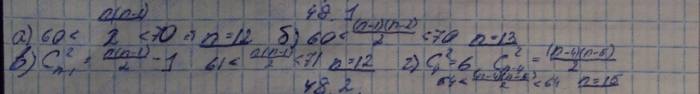 48.1
а) 60 < n(n-1)/2 < 70 ⇒ n=12 б) 60 < (n-1)(n-2)/2 < 70 n=13
в) C²ₙ₋₁ = n(n-1)/2 - 1 61 < n(n-1)/2 < 71 n=12 г) C²₄=6 C²ₙ₋₄ = (n-4)(n-5)/2
54 < (n-4)(n-5)/2 < 64 n=15
48.2